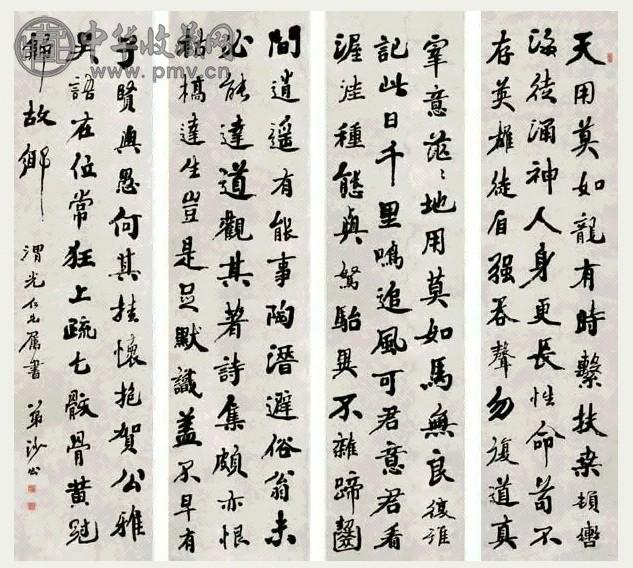 中华收藏网
www.pmv.cn
天用莫如龍有時繫扶桑頓轡
海徒涌神人身更長性命苟不
存英雄徒自强吞聲勿復道真
宰意茫〻地用莫如馬無良復誰
記此日千里鳴追風可君意君看
渥洼種態與駑駘異不雜蹄齧
間逍遥有能事陶潛避俗翁未
必能達道觀其著詩集頗亦恨
枯槁達生豈是足默識蓋不早有
子賢與愚何其挂懷抱賀公雅
吳語在位常狂上疏乞骸骨黄冠
歸故鄉
渭光仁兄属書